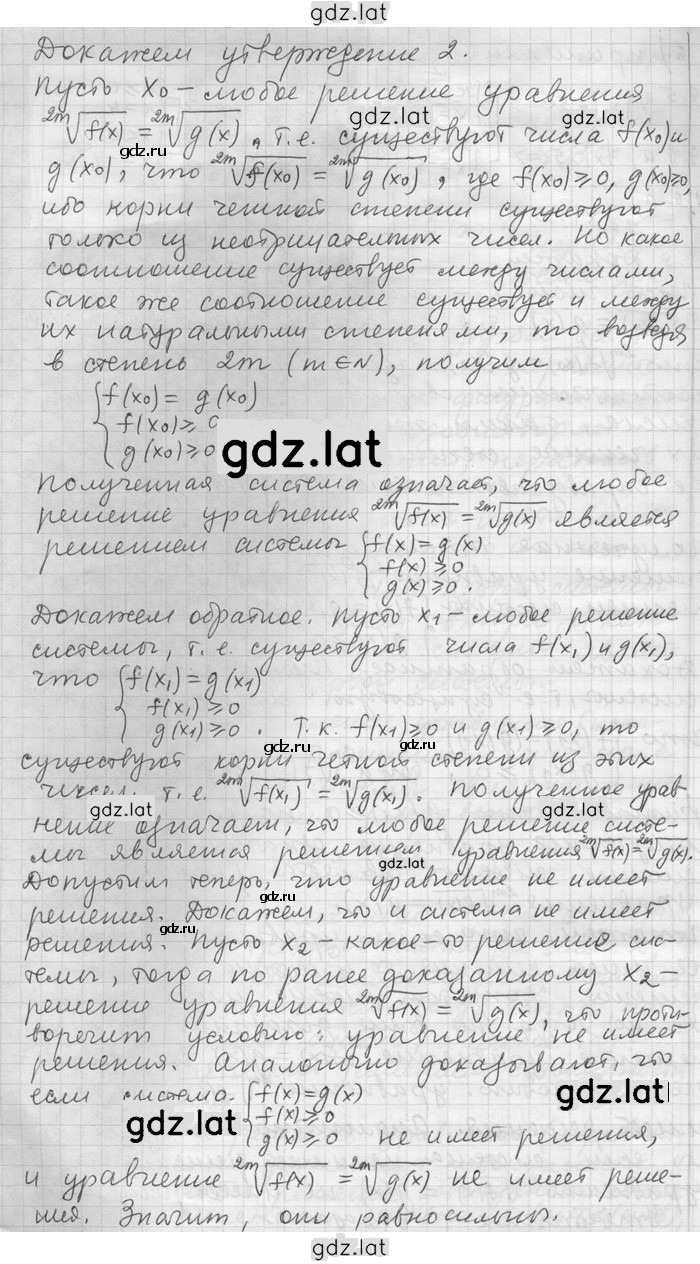 gdz.lat
Докажем утверждение 2.
Пусть x₀ – любое решение уравнения
gdz.lat
²ᵐ√f(x) = ²ᵐ√g(x), т.е. существуют числа f(x₀) и
gdz.lat
g(x₀), что ²ᵐ√f(x₀) = ²ᵐ√g(x₀), где f(x₀)≥0, g(x₀)≥0,
ибо корни четной степени существуют
только из неотрицательных чисел. Но какое
соотношение существует между числами,
такое же соотношение существует и между
их натуральными степенями, то возведя
в степень 2m (m∈N), получим
{f(x₀) = g(x₀)
f(x₀) ≥ 0
g(x₀) ≥ 0
gdz.lat
Полученная система означает, что любое
решение уравнения ²ᵐ√f(x) = ²ᵐ√g(x) является
решением системы {f(x) = g(x)
f(x) ≥ 0
g(x) ≥ 0.
Докажем обратное. Пусть x₁ – любое решение
системы, т.е. существуют числа f(x₁) и g(x₁),
что {f(x₁) = g(x₁)
f(x₁) ≥ 0
g(x₁) ≥ 0. Т.к. f(x₁)≥0 и g(x₁)≥0, то
gdz.lat
существуют корни четной степени из этих
чисел, т.е. ²ᵐ√f(x₁) = ²ᵐ√g(x₁). Полученное урав-
gdz.lat
нение означает, что любое решение систе-
мы является решением уравнения ²ᵐ√f(x) = ²ᵐ√g(x).
gdz.lat
Допустим теперь, что уравнение не имеет
gdz.lat
решения. Докажем, что и система не имеет
решения. Пусть x₂ – какое-то решение сис-
темы, тогда по ранее доказанному x₂ –
решение уравнения ²ᵐ√f(x) = ²ᵐ√g(x), что проти-
gdz.lat
воречит условию: уравнение не имеет
решения. Аналогично доказывают, что
если система {f(x) = g(x)
f(x) ≥ 0
g(x) ≥ 0 не имеет решения,
gdz.lat
gdz.lat
и уравнение ²ᵐ√f(x) = ²ᵐ√g(x) не имеет реше-
ния. Значит, они равносильны.
gdz.lat